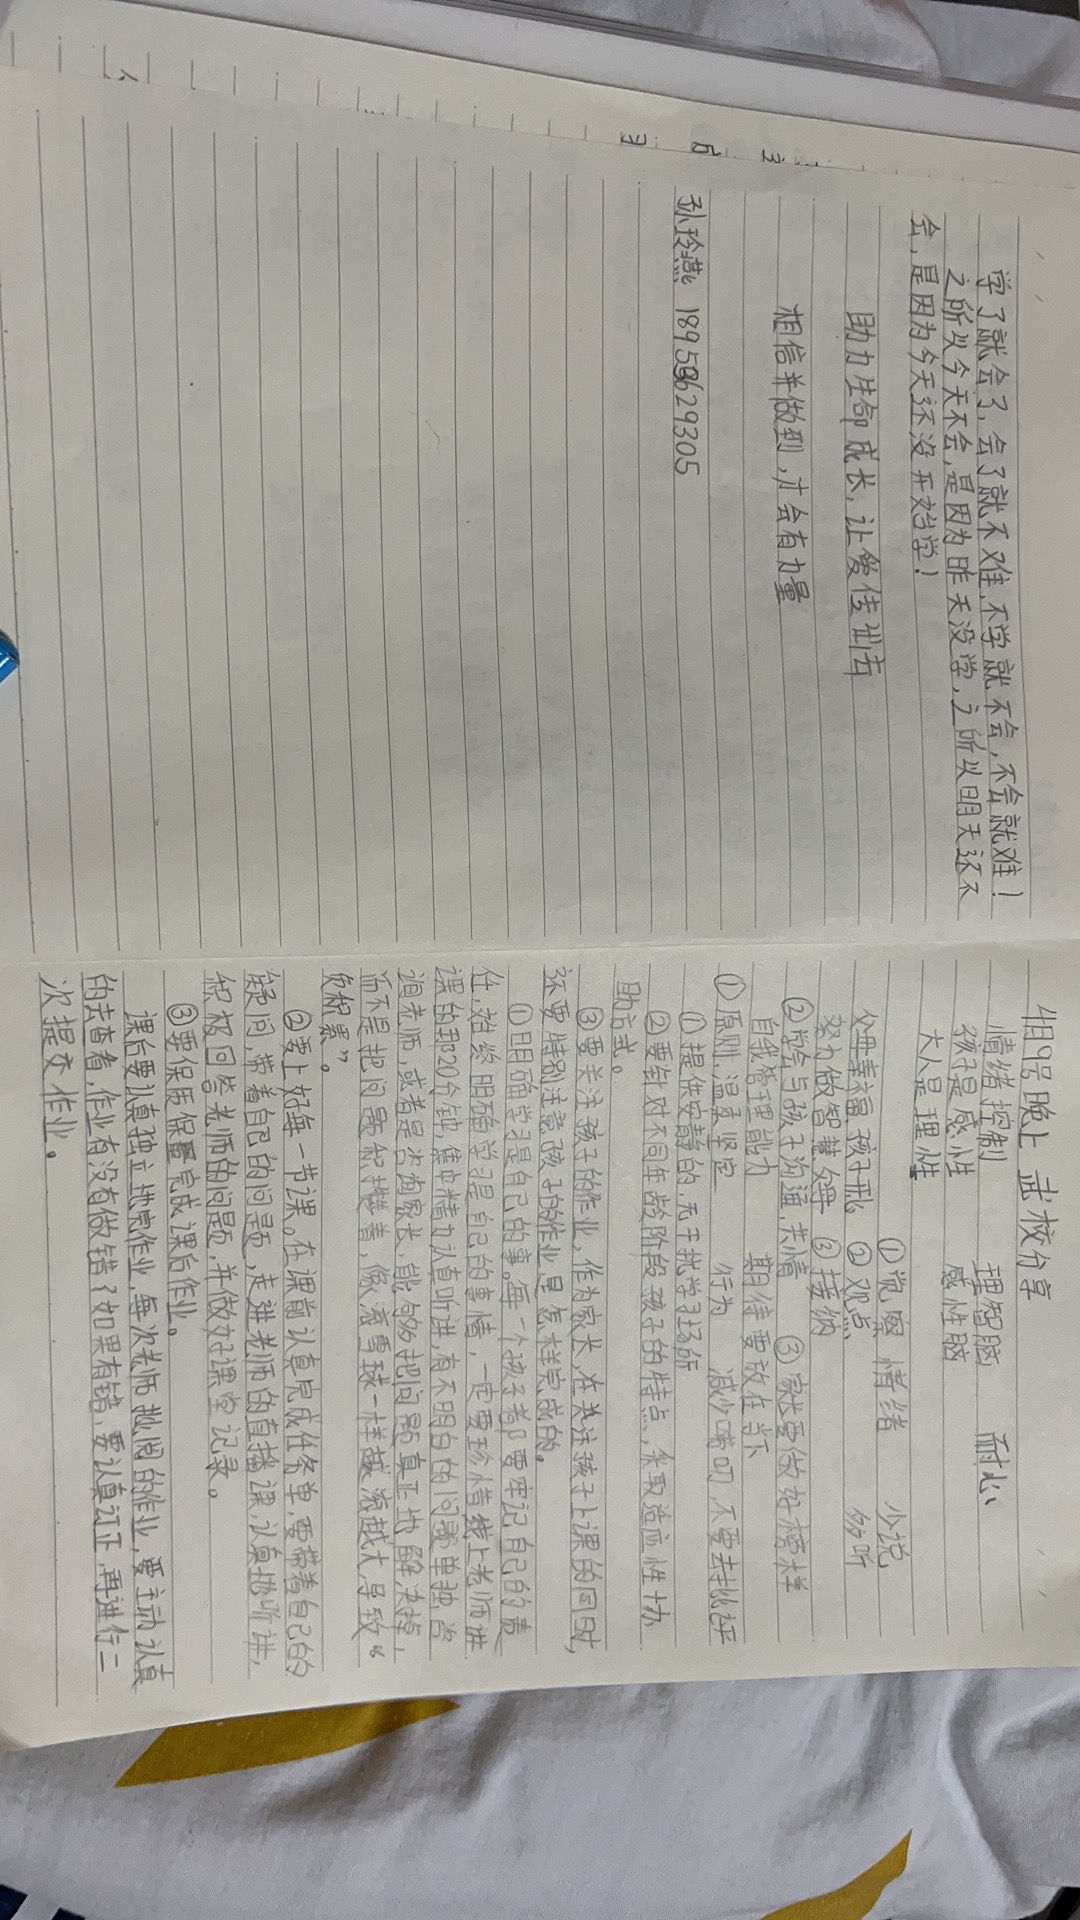 学了就会了,会了就不难,不学就不会,不会就难!
之所以今天不会,是因为昨天没学,之所以明天还不
会,是因为今天还没开始学!
助力生命成长,让爱传出去
相信并做到,才会有力量
孙玲燕 18958629305
4月9号晚上 武校分享
情绪控制 理智脑 耐心
孩子是感性 感性脑
大人是理性
①觉察情绪 少说
父母幸福,孩子乖 ②观点 多听
努力做智慧父母 ③接纳
②学会与孩子沟通,共情 ③家长要做好榜样
自我管理能力 期待要放在当下
①原则,温柔坚定 行为 减少唠叨,不要去批评
①提供安静的,无干扰学习场所
②要针对不同年龄阶段孩子的特点,采取适应性协
助方式。
③要关注孩子的作业,作为家长,在关注孩子上课的同时,
还要特别注意孩子的作业是怎样完成的。
①明确学习是自己的事。每一个孩子都要牢记自己的责
任,始终明确学习是自己的事情,一定要珍惜线上老师讲
课的那20分钟,集中精力认真听讲,有不明白的问题单独咨
询老师,或者是咨询家长,能够把问题真正地解决掉,
而不是把问题积攒着,像滚雪球一样越滚越大,导致“
负积累”。
②要上好每一节课。在课前认真完成任务单,要带着自己的
疑问,带着自己的问题,走进老师的直播课,认真地听讲,
积极回答老师的问题,并做好课堂记录。
③要保质保量完成课后作业。
课后要认真独立地完作业,每次老师批阅的作业,要主动认真
的去查看,作业有没有做错了如果有错,要认真订正,再进行二
次提交作业。